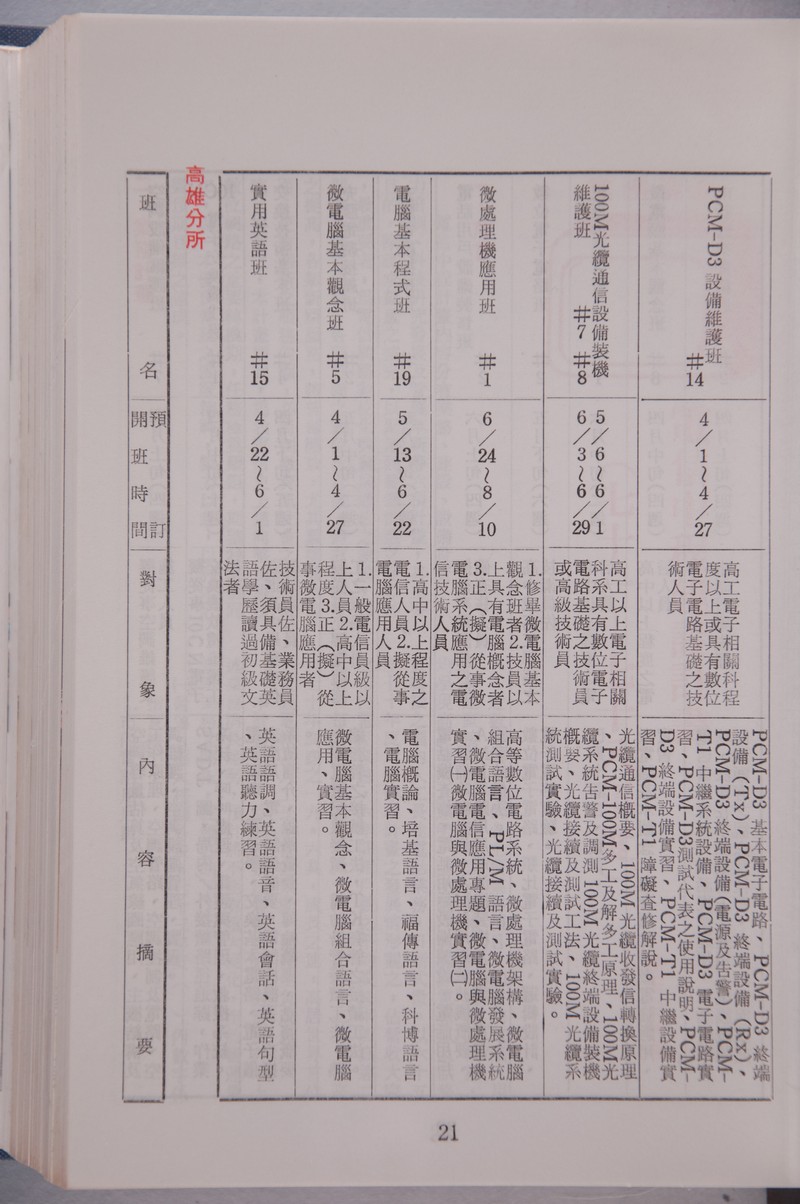 PCM-D3 設備維護班
#14
4/1~4/27
高工電子相關科程
度以上或具有數位
電子電路基礎之技
術人員
PCM-D3 基本電子電路、PCM-D3 終端
設備（Tx）、PCM-D3 終端設備（Rx）、
PCM-D3 終端設備（電源及告警）、PCM-
T1 中繼系統設備、PCM-D3 電子電路實
習、PCM-D3測試代表之使用說明、PCM-
D3 終端設備實習、PCM-T1 中繼設備實
習、PCM-T1 障礙查修解說。
100M光纜通信設備裝機
維護班 #7 #8
5/6~6/1
6/3~6/29
高工以上電子相關
科系具有數位電子
電路基礎之技術員
或高級技術員
光纜通信概要、100M 光纜收發信轉換原理
、PCM-100M多工及解多工原理、100M光
纜系統告警及調測 100M 光纜終端設備裝機
概要、光纜接續及測試工法、100M 光纜系
統測試實驗、光纜接續及測試實驗。
微處理機應用班 #1
6/24~8/10
1.修畢微電腦基本
觀念班者2.技員以
上具有電腦概念者
3.正（擬）從事微
電腦系統應用之電
信技術人員
高等數位電路系統、微處理機架構、微電腦
組合語言、PL/M 語言、微電腦發展系統
、微電腦電信應用專題、微電腦與微處理機
實習㈠微電腦與微處理機實習㈡。
電腦基本程式班 #19
5/13~6/22
1.高中以上程度之
電信人員2.擬從事
電腦應用人員
電腦概論、培基語言、福傳語言、科博語言
、電腦實習。
微電腦基本觀念班 #5
4/1~4/27
1.一般電信員級以
上人員2.高中以上
程度3.正（擬）從
事微電腦應用者
微電腦基本觀念、微電腦組合語言、微電腦
應用、實習。
實用英語班 #15
4/22~6/1
技術員佐、業務員
佐、須具備基礎英
語學歷讀過初級文
法者
英語語調、英語語音、英語會話、英語句型
、英語聽力練習。
高雄分所
班名
預訂
開班時間
對象
內容摘要
21